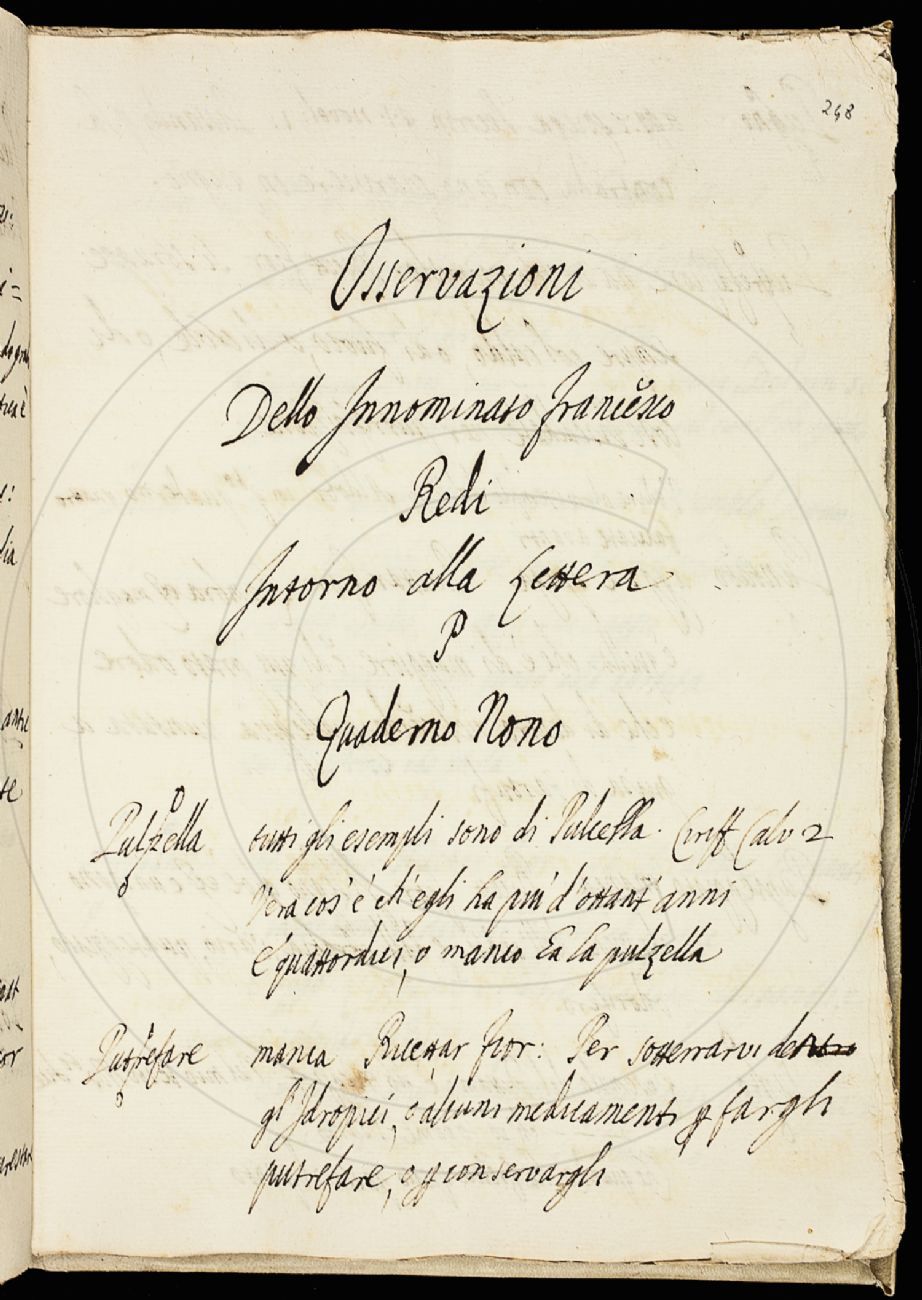 248
Osservazioni
Dello Innominato Francesco
Redi
Intorno alla Lettera
P
Quaderno Nono
Pulzella tutti gli esempli sono di Pulcella. Ciriff Calv 2
Vera cos' é ch' egli ha più d'ottant' anni
E quattordici, o manco ha la pulzella
Putrefare manca Ricettar Fior: Per sotterrarvi dentro
gl' Idropici, e alcuni medicamenti p fargli
putrefare, o p conservargli